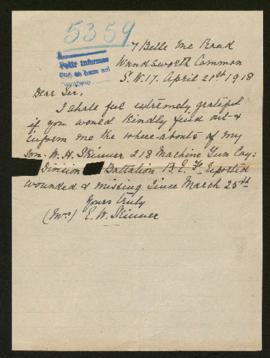 5359
7 Belle Vue Road
Wandsworth Common
S.W.17. April 21st 1918
Dear Sir.
I shall feel extremely grateful
if you would kindly find out &
inform me the where-abouts of my
son. W. H. Skinner 218 Machine Gun Coy:
Division Battalion B.E.F. reported
wounded & missing since March 25th
Yours truly
(Mrs) E. W. Skinner